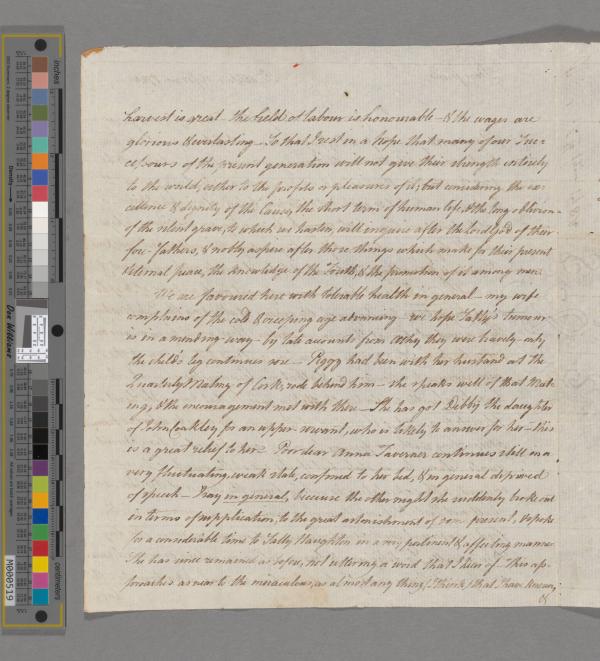 harvest is great – the field of labour is honourable – & the wages are
glorious & everlasting – So that I rest in a hope that many of our Suc=
cessours of the present generation will not give their strength entirely
to the world, either to the profits or pleasures of it; but considering the ex=
cellence & dignity of the Cause, the short term of human life, & the long oblivion
of the silent grave, to which we hasten, will inquire after the Lord God of their
fore-fathers, & nobly aspire after those things which make for their present
& eternal peace, the knowledge of the Truth, & the promotion of it among men.
We are favoured here with tolerable health in general – my wife
complains of the cold & creeping age advancing – we hope Sally's tumour
is in a mending way – by late account from Athy they were bravely – only
the child's leg continues sore – Peggy had been with her husband at the
Quarterly Meeting of Cork, rode behind him – she speaks well of that Meet=
ing, & the encouragement met with there – She has got Debby the daughter
of John Coakley, for an upper-servant, who is likely to answer for her – this
is a great relief to her – Poor dear Anna Taverner continues still in a
very fluctuating, weak state, confined to her bed, & in general deprived
of speech – I say in general, because the other night she suddenly broke out
in terms of supplication, to the great astonishment of present, & spoke
for a considerable time to Sally Haughton in a very pertinent & affecting manner
She has since remained as before, not uttering a word that I hear of – This ap=
proaches as near to the miraculous, as almost any thing, I think, that I have known,
inches
Density
Don Williams
M000519
centimeters